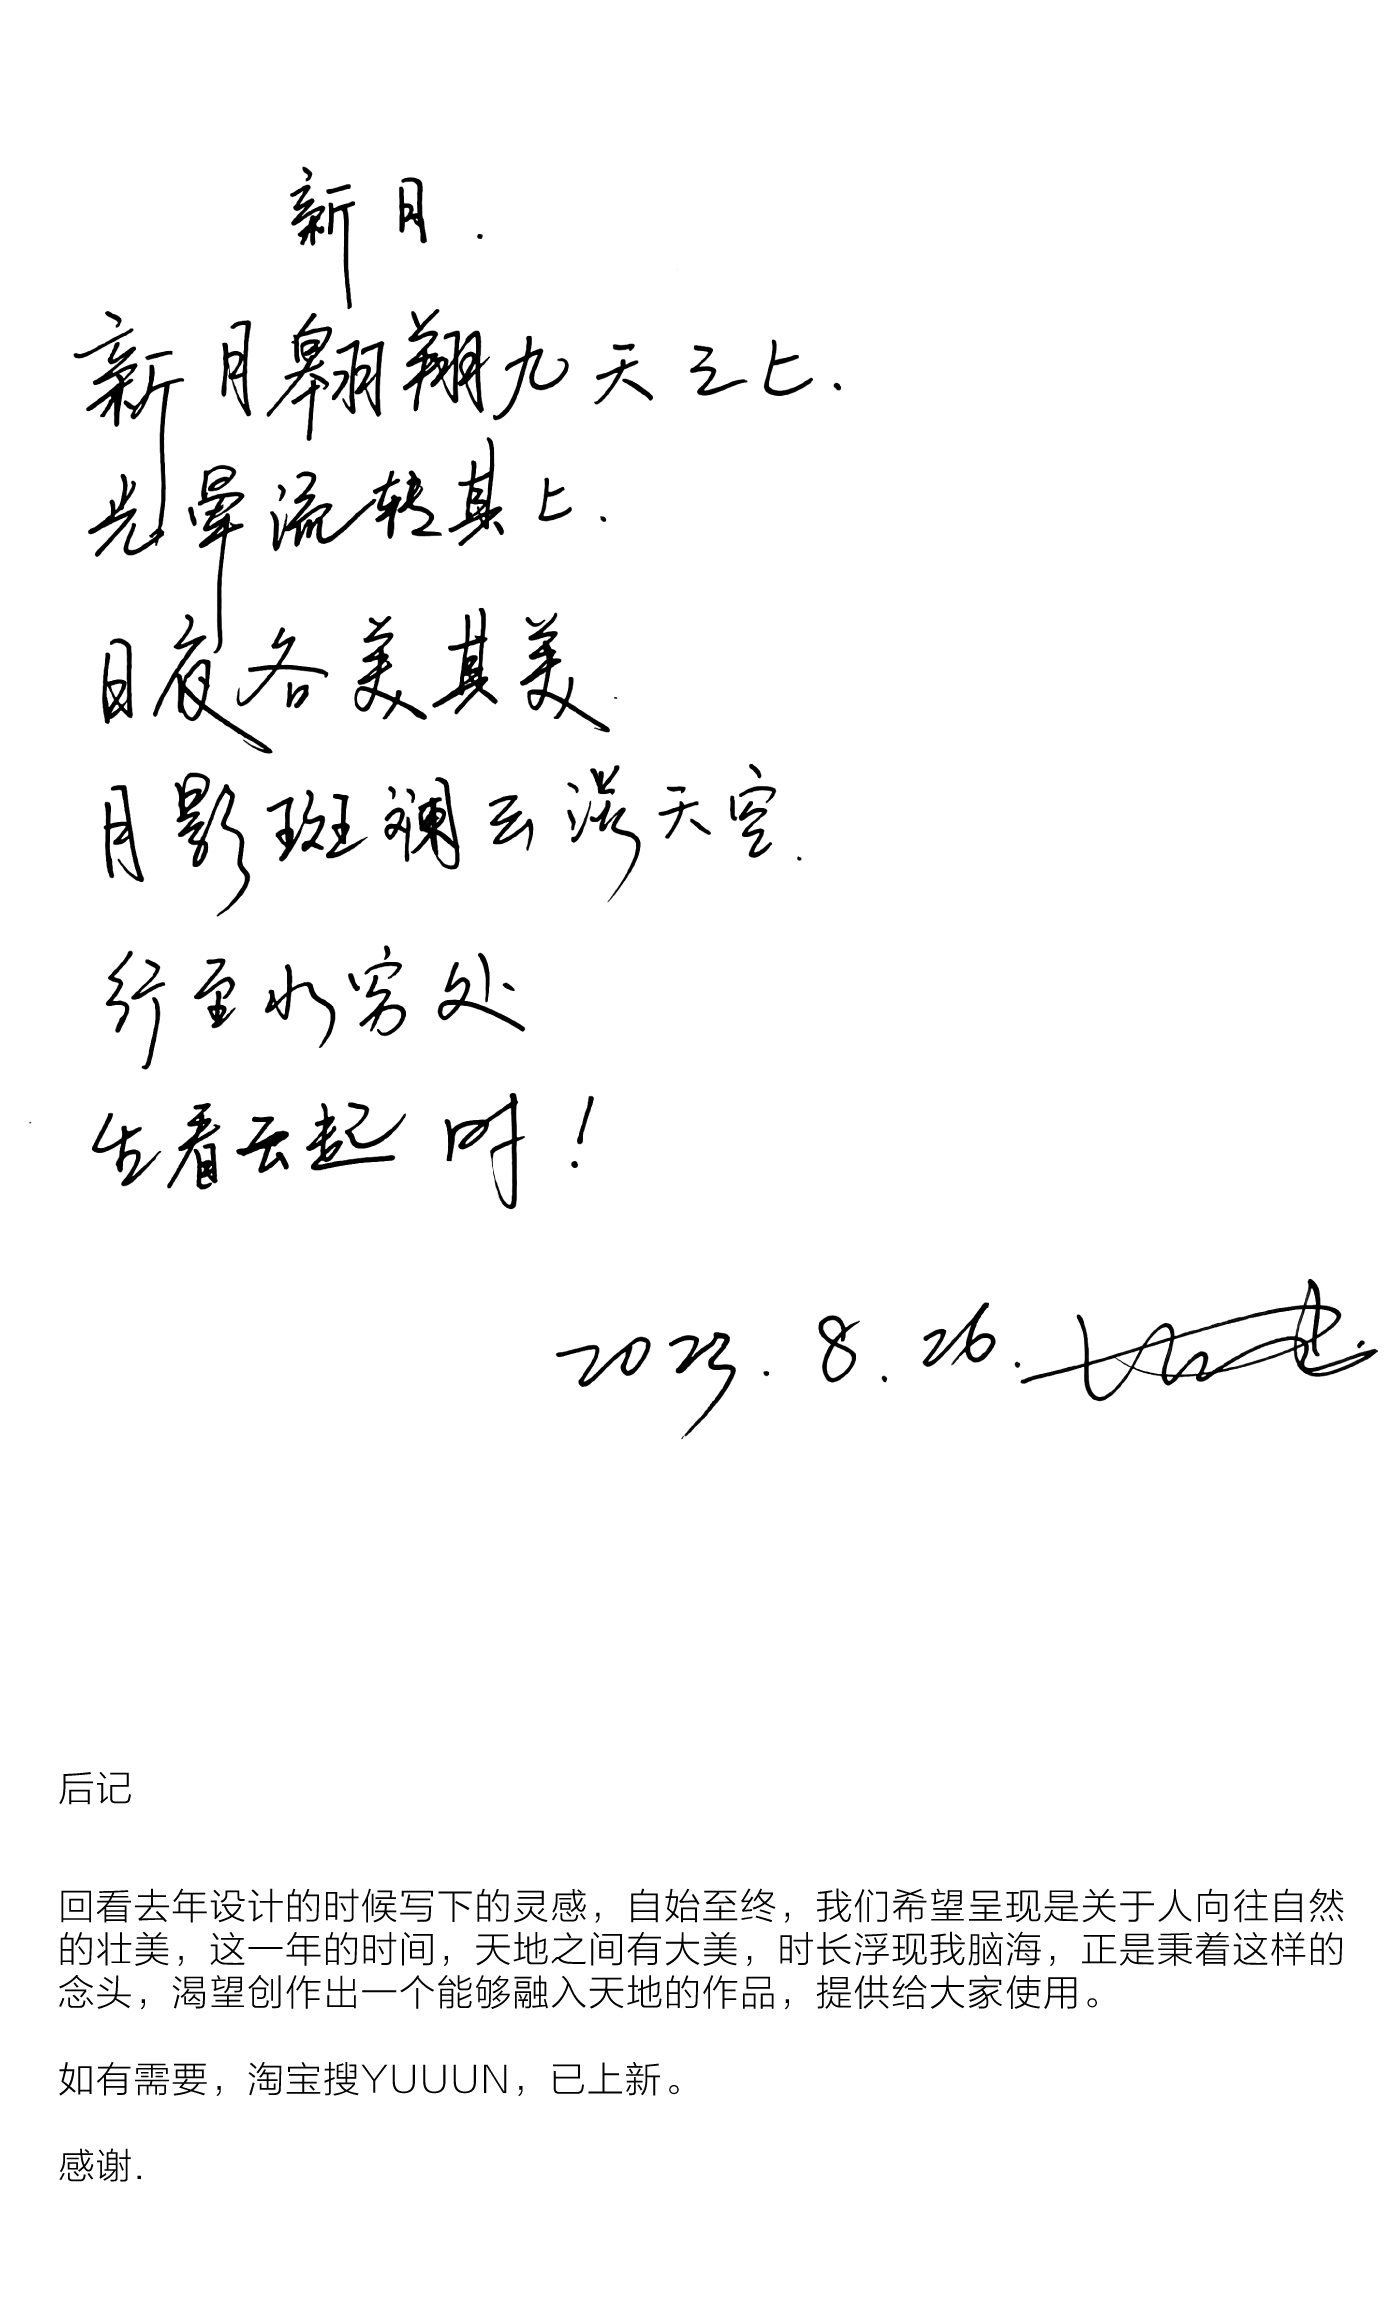 新月.
新月翱翔九天之上.
光晕流转其上.
日夜各美其美.
月影斑斓云漾天空.
行至水穷处
坐看云起时!
2023.8.26.
后记
回看去年设计的时候写下的灵感，自始至终，我们希望呈现是关于人向往自然
的壮美，这一年的时间，天地之间有大美，时长浮现我脑海，正是秉着这样的
念头，渴望创作出一个能够融入天地的作品，提供给大家使用。
如有需要，淘宝搜YUUUN，已上新。
感谢.